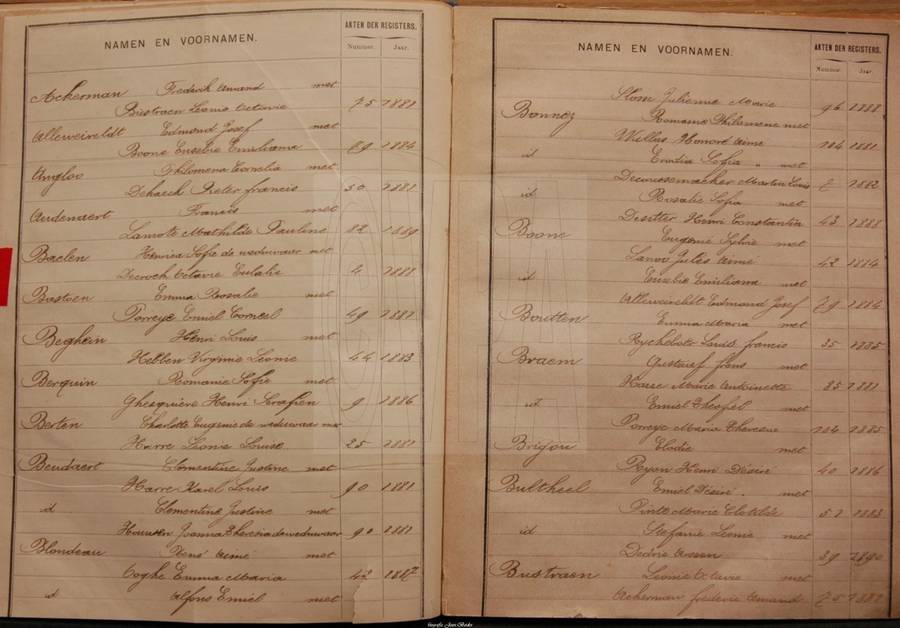 NAMEN EN VOORNAMEN.
AKTEN DER REGISTERS.
Nummer. Jaar.
Ackerman Frederik Amand met
Bustraen Leonie Octavie 75 1881
Allerweireldt Edmond Josef met
Boone Eusebie Emiliana 89 1884
Philomena Cornelia met
Pieter francis 50 1881
Audenaert Francis met
Lamote Mathilde Pauline 82 1889
Baelen Henria Sofie de weduwaar met
Decroch Octavie Eulalie 4 1888
Bastoen Emma Rosalie met
Porreye Emiel Corneel 49 1887
Beghein Henri Louis met
Hebben Virginie Leonie 44 1883
Berquin Romanie Sofie met
Ghesquiere Henri Serafien 9 1886
Berten Charlotte Eugenie de weduwaar met
Harre Leonie Louise 25 1881
Beudaert Clementine Justine met
Harre Karel Louis 90 1881
id Clementine Justine met
Joanna Theresia de weduwaar 90 1881
Blondeau René Aimé met
Coghe Emma Maria 42
id Alfons Emiel met
NAMEN EN VOORNAMEN.
AKTEN DER REGISTERS.
Nummer. Jaar.
Slom Julienne Marie 96 1888
Bonnez Romanie Philomene met
Willas Honoré Aimé 104 1881
id Sofia met
Martin Louis 1882
id Rosalie Sofia met
Desitter Henri Constantin 43 1888
Boone Eugenie Sylvie met
Lanoo Jules Aimé 42 1884
id Eusebie Emiliana met
Allerweireldt Edmond Josef 89 1884
Boutten Emma Maria met
Rychebots Louis francis 35 1885
Braem Gustaaf frans met
Marie Antoinette 85 1881
id Emiel Theofiel met
Porreye Maria Therese 104 1885
Brigou Elodie met
Ryan Henri Désiré 40 1886
Bultheel Emiel Désiré met
Pinte Marie Clotilde 51 1883
id Stefanie Leonie met
39 1890
Bustraen Leonie Octavie met
Ackerman frederic Amand 75 1881